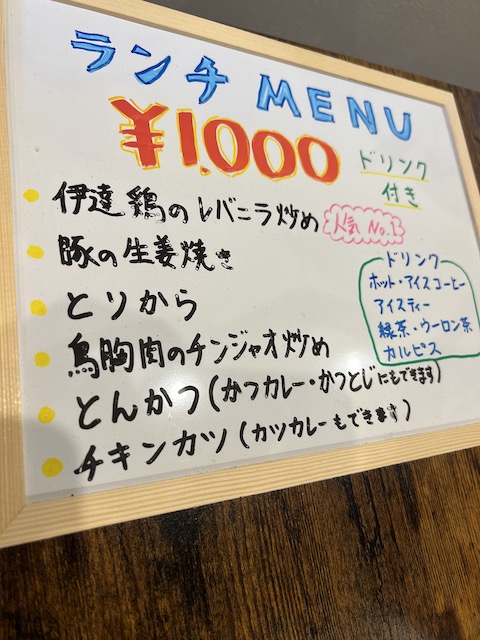 ランチ MENU
¥1,000
ドリンク
付き
伊達鶏のレバニラ炒め
人気 No.1
豚の生姜焼き
とりから
鳥胸肉のチンジャオ炒め
とんかつ(かつカレー・かつとじにもできます)
チキンカツ(カツカレーもできます)
ドリンク
ホット・アイスコーヒー
アイスティー
緑茶・ウーロン茶
カルピス